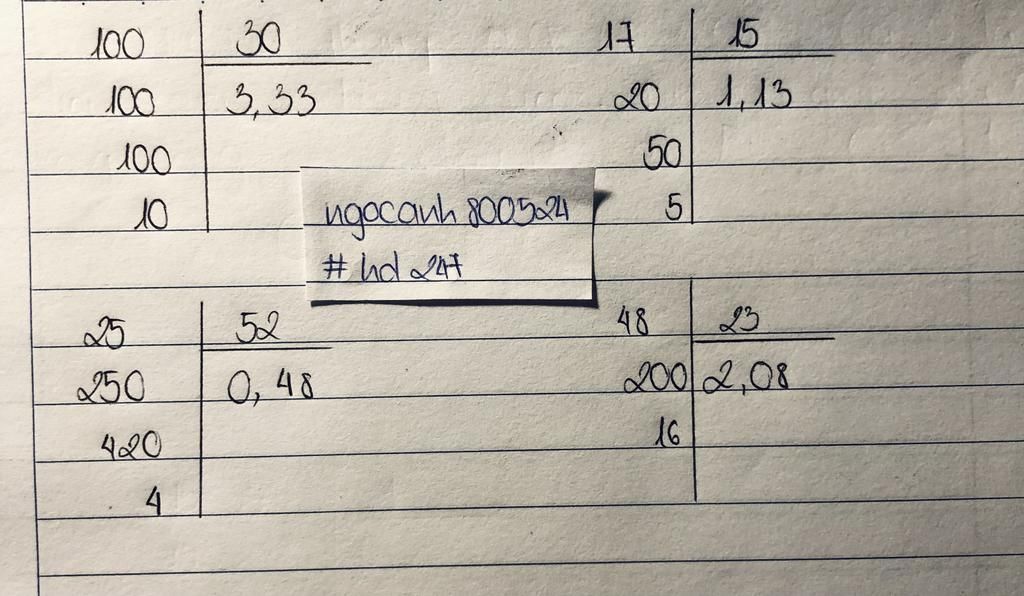 100 30
100 3,33
100
10
17 15
20 1,13
50
5
ngocanh800524
# hd 247
25 52
250 0,48
420
4
48 23
200 2,08
16